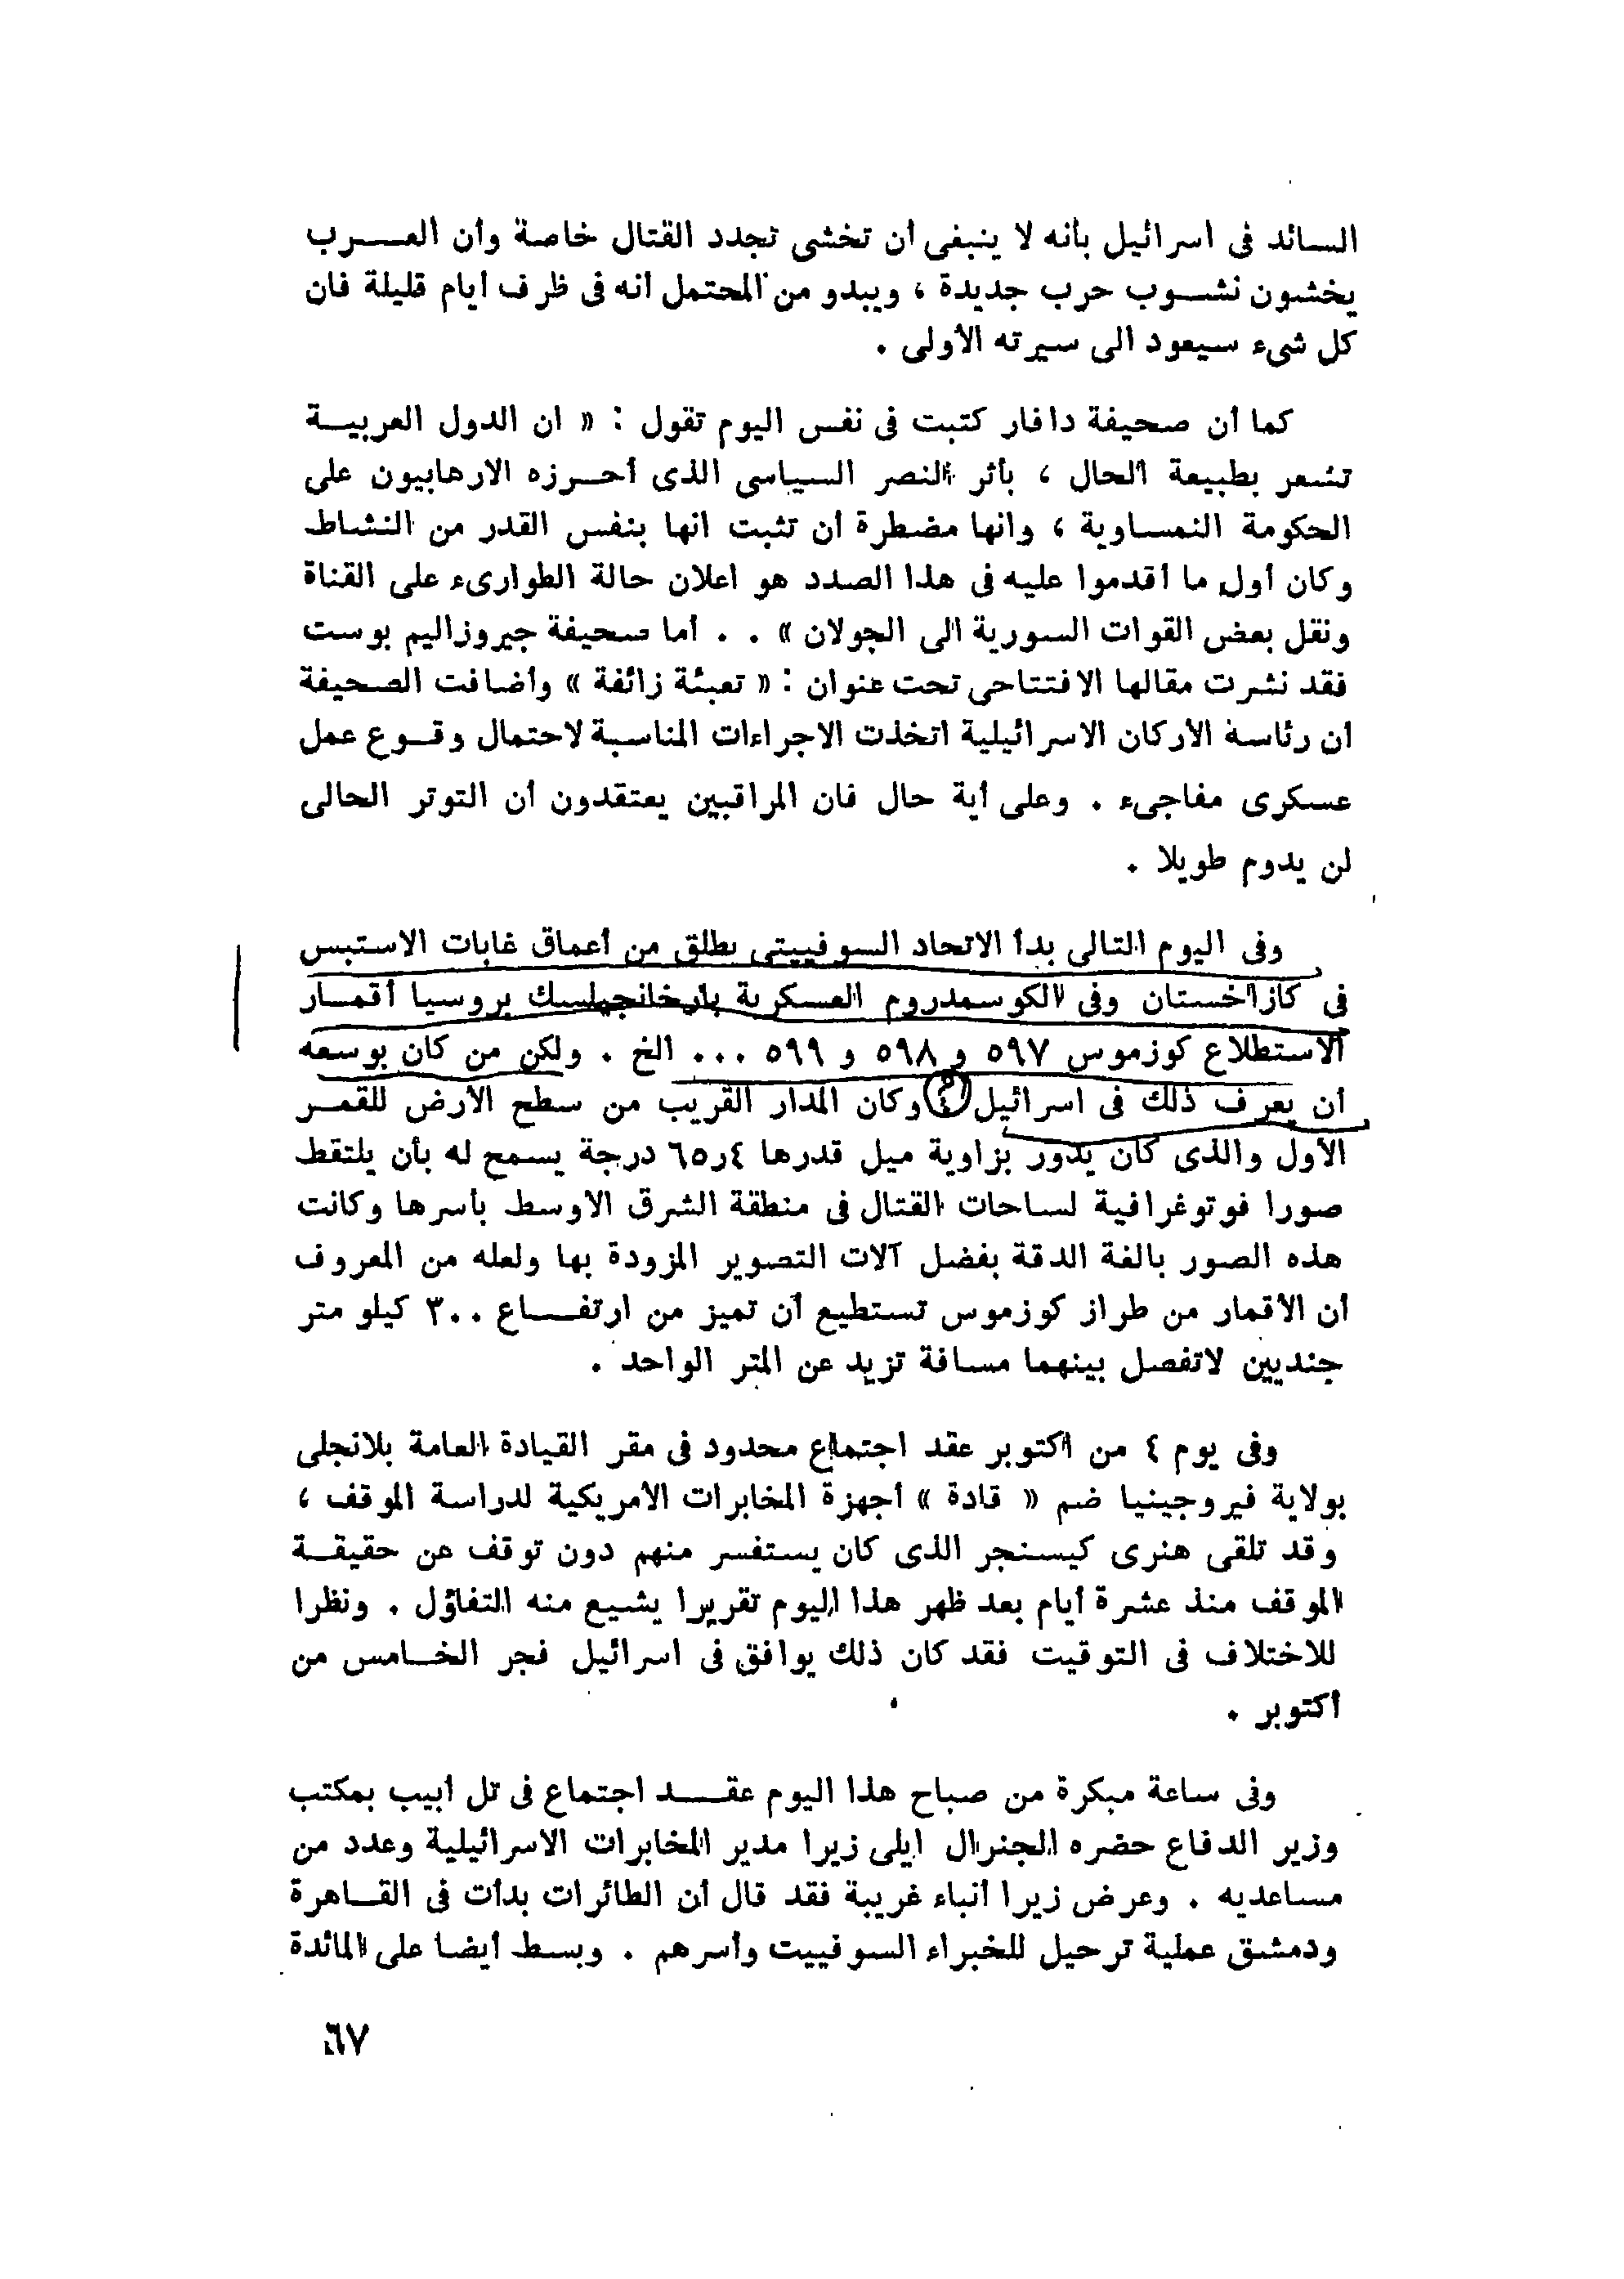 السائد فى اسرائيل بأنه لا ينبغى ان تخشى تجدد القتال خاصة وأن العـــرب
يخشون نشــوب حرب جديدة ، ويبدو من المحتمل انه فى ظرف ايام قليلة فان
كل شىء سيعود الى سيرته الأولى .
كما أن صحيفة دافار كتبت فى نفس اليوم تقول : « ان الدول العربيــة
تشعر بطبيعة الحال ، بأثر النصر السياسى الذى أحــرزه الارهابيون على
الحكومة النمساوية ، وانها مضطرة ان تثبت انها بنفس القدر من النشاط
وكان أول ما أقدموا عليه فى هذا الصدد هو اعلان حالة الطوارىء على القناة
ونقل بعض القوات السورية الى الجولان » . . أما صحيفة جيروزاليم بوست
فقد نشرت مقالها الافتتاحى تحت عنوان : « تعبئة زائفة » وأضافت الصحيفة
ان رئاسة الأركان الاسرائيلية اتخذت الاجراءات المناسبة لاحتمال وقــوع عمل
عسكرى مفاجىء . وعلى أية حال فان المراقبين يعتقدون أن التوتر الحالى
لن يدوم طويلا .
وفى اليوم التالى بدأ الاتحاد السوفييتى يطلق من أعماق غابات الاستبس
فى كازاخستان وفى الكوسمدروم العسكرية بارخانجيلسك بروسيا أقمــار
الاستطلاع كوزموس ٥٩٧ و ٥٩٨ و ٥٩٩ ... الخ . ولكن من كان بوسعه
أن يعرف ذلك فى اسرائيل وكان المدار القريب من سطح الأرض للقمــر
الأول والذى كان يدور بزاوية ميل قدرها ٦٥٫٤ درجة يسمح له بأن يلتقط
صورا فوتوغرافية لساحات القتال فى منطقة الشرق الاوسط بأسرها وكانت
هذه الصور بالغة الدقة بفضل آلات التصوير المزودة بها ولعله من المعروف
أن الأقمار من طراز كوزموس تستطيع أن تميز من ارتفــاع ٣٠٠ كيلو متر
جنديين لاتفصل بينهما مسافة تزيد عن المتر الواحد .
وفى يوم ٤ من اكتوبر عقد اجتماع محدود فى مقر القيادة العامة بلانجلى
بولاية فيروجينيا ضم « قادة » أجهزة المخابرات الأمريكية لدراسة الموقف ،
وقد تلقى هنرى كيسنجر الذى كان يستفسر منهم دون توقف عن حقيقــة
الموقف منذ عشرة أيام بعد ظهر هذا اليوم تقريرا يشيع منه التفاؤل . ونظرا
للاختلاف فى التوقيت فقد كان ذلك يوافق فى اسرائيل فجر الخــامس من
أكتوبر .
وفى ساعة مبكرة من صباح هذا اليوم عقــد اجتماع فى تل أبيب بمكتب
وزير الدفاع حضره الجنرال ايلى زيرا مدير المخابرات الاسرائيلية وعدد من
مساعديه . وعرض زيرا أنباء غريبة فقد قال أن الطائرات بدأت فى القــاهرة
ودمشق عملية ترحيل للخبراء السوفييت وأسرهم . وبسط أيضا على المائدة
٦٧